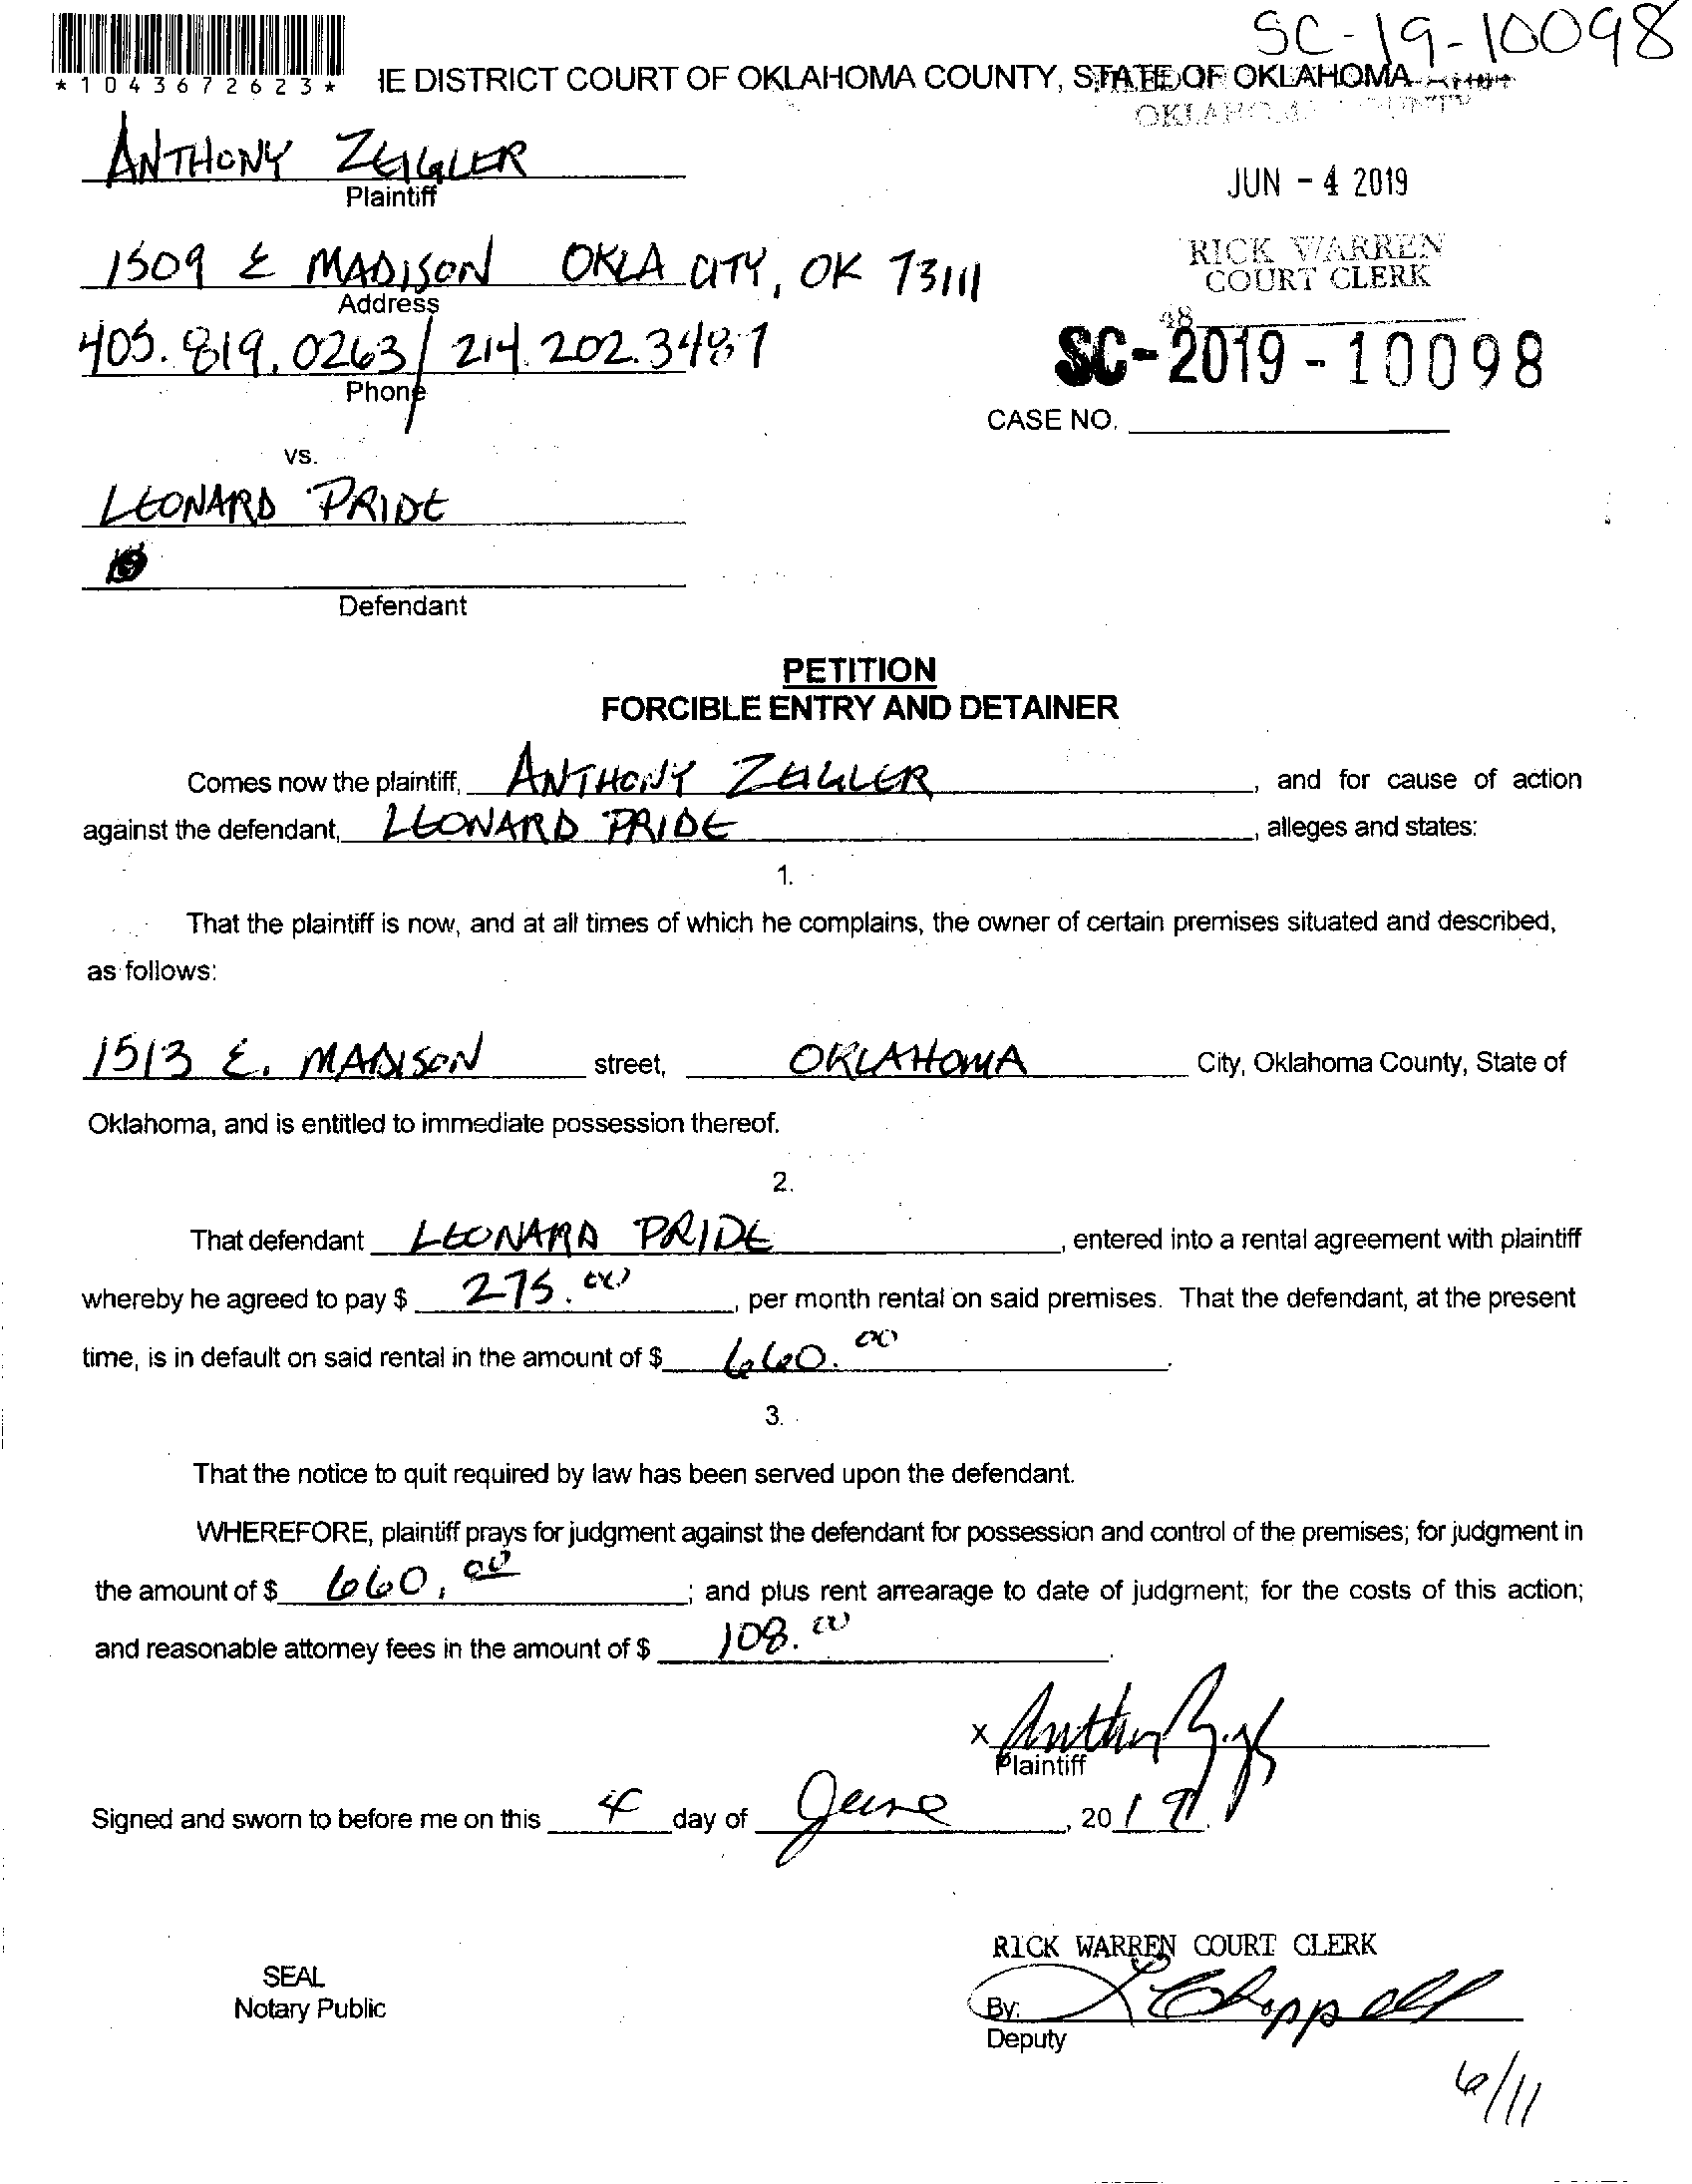 SC-19-10098
*1043672623*
IE DISTRICT COURT OF OKLAHOMA COUNTY, STATE OF OKLAHOMA
OKLAHOMA COUNTY
ANTHONY ZEIGLER
Plaintiff
JUN - 4 2019
1509 E MADISON OKLA CITY, OK 73111
Address
RICK WARREN
COURT CLERK
405.819.0263 / 214.202.3487
Phone
48
SC-2019-10098
CASE NO.
vs.
LEONARD PRIDE
Defendant
PETITION
FORCIBLE ENTRY AND DETAINER
Comes now the plaintiff, ANTHONY ZEIGLER, and for cause of action
against the defendant, LEONARD PRIDE, alleges and states:
1.
That the plaintiff is now, and at all times of which he complains, the owner of certain premises situated and described,
as follows:
1513 E. MADISON street, OKLAHOMA City, Oklahoma County, State of
Oklahoma, and is entitled to immediate possession thereof.
2.
That defendant LEONARD PRIDE, entered into a rental agreement with plaintiff
whereby he agreed to pay $ 275.00, per month rental on said premises. That the defendant, at the present
time, is in default on said rental in the amount of $ 660.00.
3.
That the notice to quit required by law has been served upon the defendant.
WHEREFORE, plaintiff prays for judgment against the defendant for possession and control of the premises; for judgment in
the amount of $ 660.00; and plus rent arrearage to date of judgment; for the costs of this action;
and reasonable attorney fees in the amount of $ 108.00.
X
Plaintiff
Signed and sworn to before me on this 4 day of June, 2019.
RICK WARREN COURT CLERK
SEAL
Notary Public
By: L Chappell
Deputy
6/11